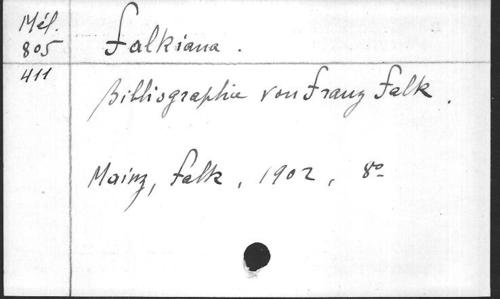 Mél.
805
411
Falkiana.
Bibliographie von Franz Falk.
Mainz, Falk, 1902, 8º